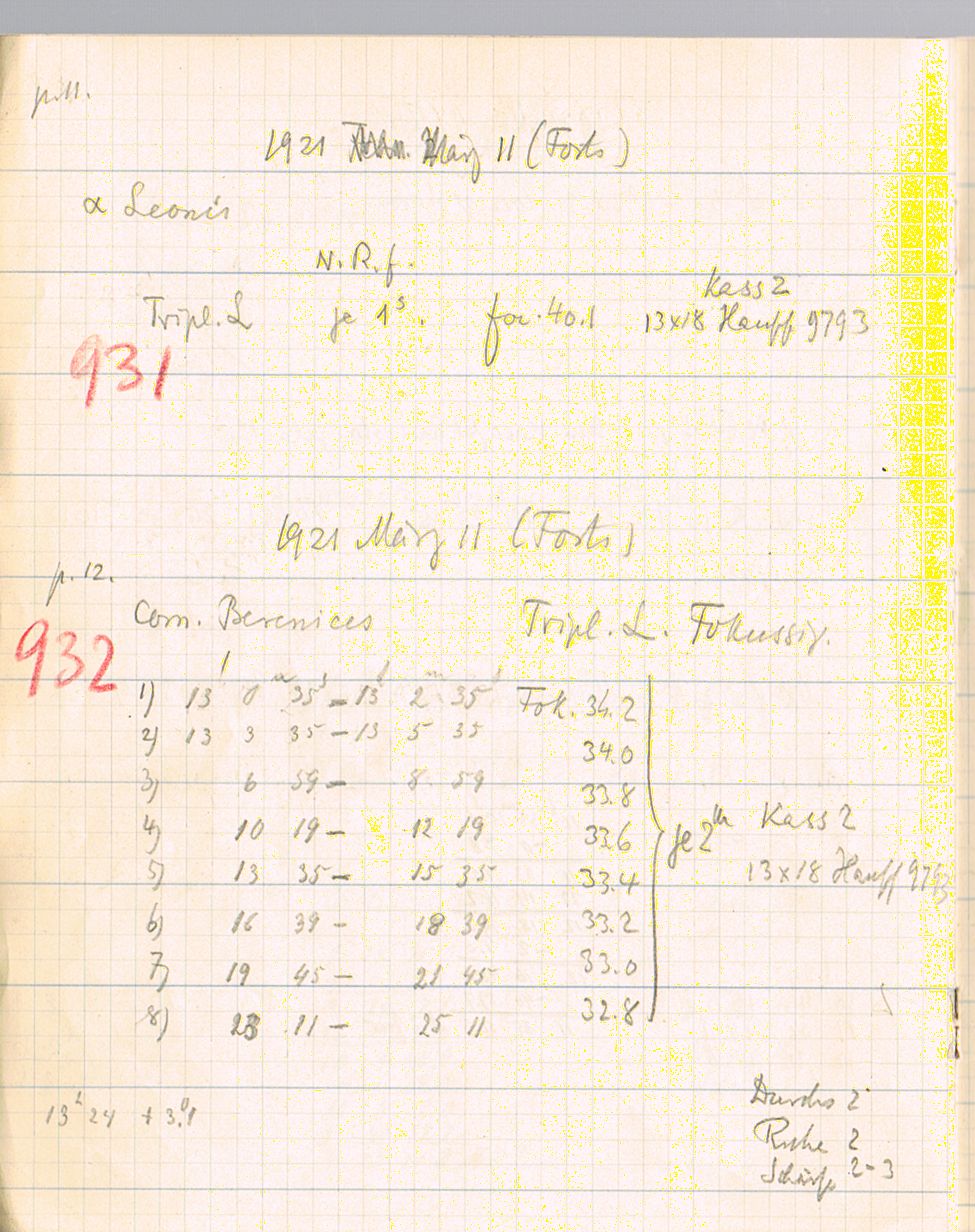 p. 11.
1921 März 11 (Forts)
α Leonis
N. R. f.
Kass 2
Tripl. L je 1ˢ. foc. 40.1 13x18 Hauff 9793
931
1921 März 11 (Forts)
p. 12.
Com. Berenices Tripl. L. Fokussir.
932
1) 13ʰ 0ᵐ 35ˢ – 13ʰ 2ᵐ 35ˢ Fok. 34.2
2) 13 3 35 – 13 5 35 34.0
3) 6 59 – 8 59 33.8
4) 10 19 – 12 19 33.6 je 2ᵐ Kass 2
5) 13 35 – 15 35 33.4 13x18 Hauff 9793
6) 16 39 – 18 39 33.2
7) 19 45 – 21 45 33.0
8) 23 11 – 25 11 32.8
Durchs 2
13ʰ 24 + 3.⁰1
Ruhe 2
Schärfe 2-3